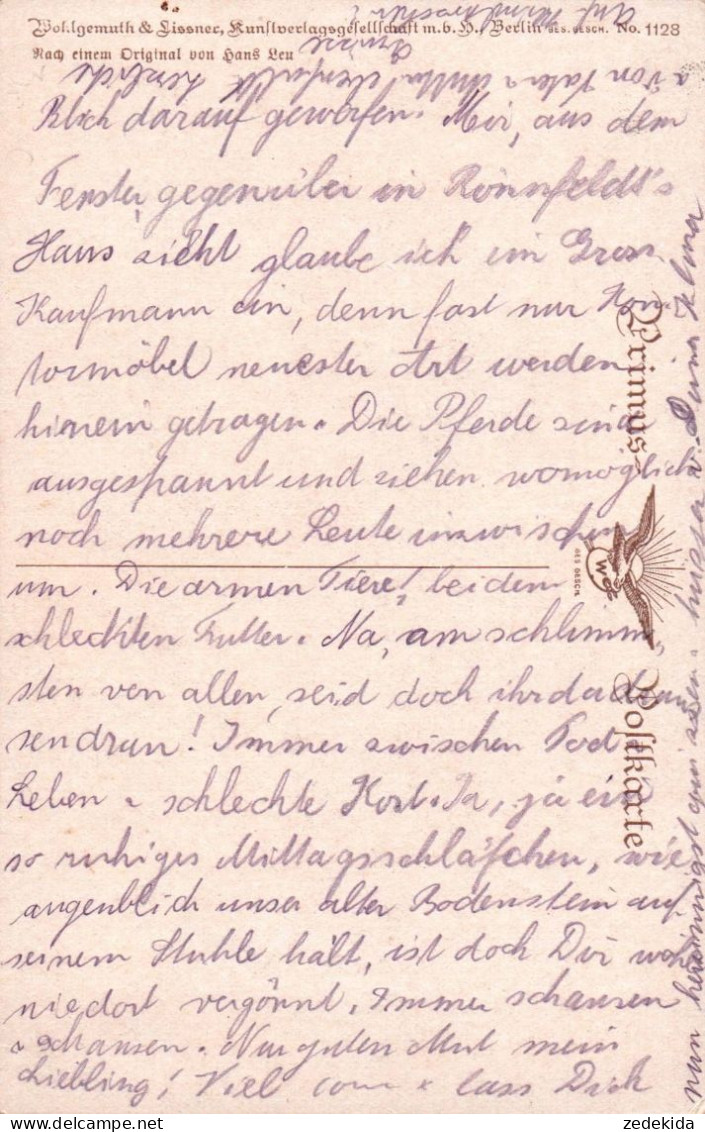 Wohlgemuth & Lissner, Kunstverlagsgesellschaft m. b. H., Berlin GES. GESCH. No. 1128
Nach einem Original von Hans Leu
Blick darauf geworfen. Mir, aus dem
Fenster, gegenüber in Rönnfeldt's
Haus zieht glaube ich ein Gross
Kaufmann ein, denn fast nur Kon-
tormöbel neuester Art werden
hinein getragen. Die Pferde sind
ausgespannt und ziehen womöglich
noch mehrere Leute inzwischen
um. Die armen Tiere! bei dem
schlechten Futter. Na, am schlimm-
sten von allen, seid doch ihr da drau
sen dran! Immer zwischen Tod
Leben u schlechte Kost. Ja, ja ein
so ruhiges Mittagsschläfchen, wie
augenblich unser alter Bodenstein auf
seinem Stuhle hält, ist doch Dir wohl
nie dort vergönnt. Immer schansen
u schansen. Nur guten Mut mein
Liebling! Viel u lass Dich
nun herzinnigst u. Deiner Selma
u von Vater u Mutter ebenfalls herzliche
Grüsse
Auf Wiedersehn!
Primus-
Postkarte
GES. GESCH.